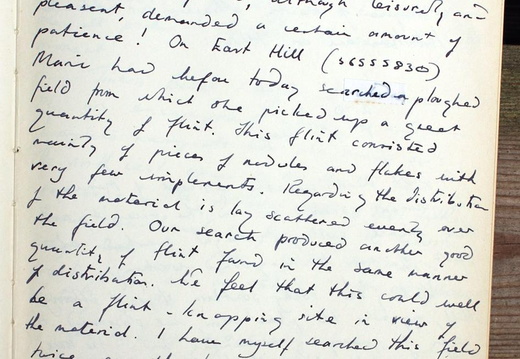 pleasent, demanded a certain amount of
patience! On East Hill (56555830)
Marie had before today searched a ploughed
field from which she picked up a great
quantity of flint. This flint consisted
mainly of pieces of nodules and flakes with
very few implements. Regarding the distribution
of the material is lay scattered evenly over
the field. Our search produced another good
quantity of flint found in the same manner
of distribution. We feel that this could well
be a flint-knapping site in view of
the material. I have myself searched this field
twice